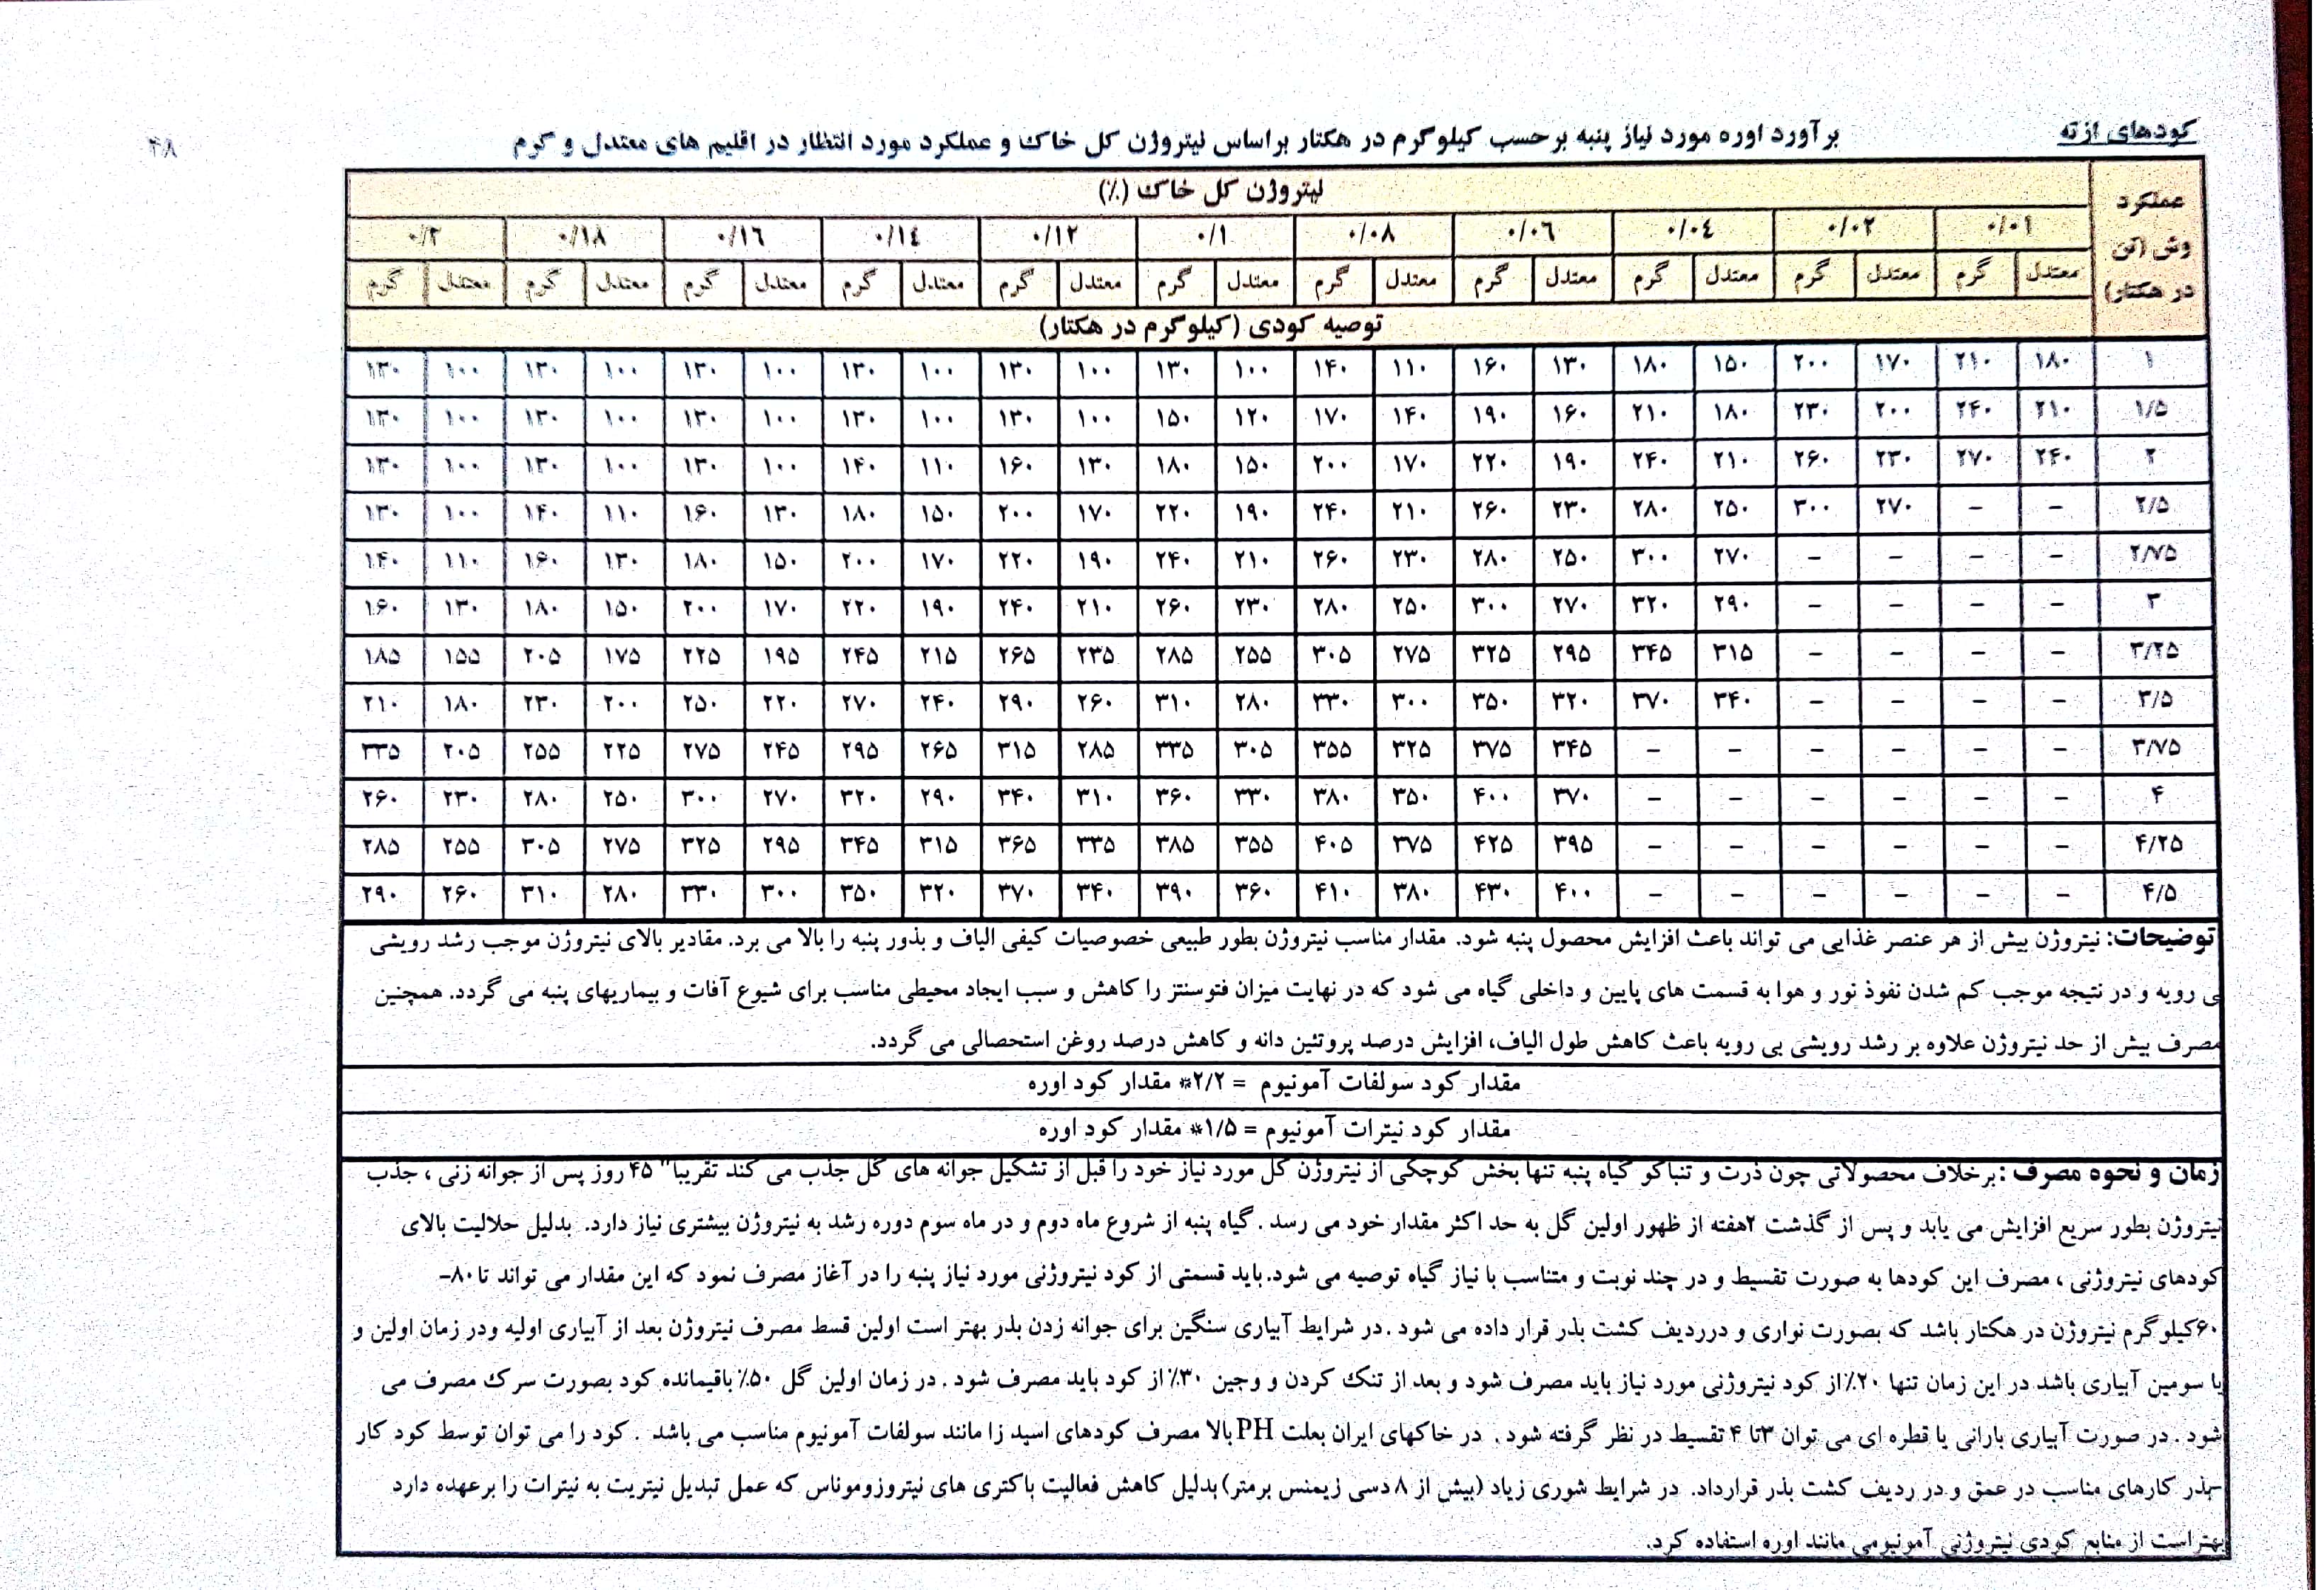 ۴۸
کودهای ازته
برآورد اوره مورد نیاز پنبه برحسب کیلوگرم در هکتار براساس نیتروژن کل خاک و عملکرد مورد انتظار در اقلیم های معتدل و گرم
عملکرد وش (تن در هکتار) نیتروژن کل خاک (٪)
۰/۰۱ ۰/۰۲ ۰/۰٤ ۰/۰٦ ۰/۰۸ ۰/۱ ۰/۱۲ ۰/۱٤ ۰/۱٦ ۰/۱۸ ۰/۲
معتدل گرم معتدل گرم معتدل گرم معتدل گرم معتدل گرم معتدل گرم معتدل گرم معتدل گرم معتدل گرم معتدل گرم معتدل گرم
توصیه کودی (کیلوگرم در هکتار)
۱ ۱۸۰ ۲۱۰ ۱۷۰ ۲۰۰ ۱۵۰ ۱۸۰ ۱۳۰ ۱۶۰ ۱۱۰ ۱۴۰ ۱۰۰ ۱۳۰ ۱۰۰ ۱۳۰ ۱۰۰ ۱۳۰ ۱۰۰ ۱۳۰ ۱۰۰ ۱۳۰ ۱۰۰ ۱۳۰
۱/۵ ۲۱۰ ۲۴۰ ۲۰۰ ۲۳۰ ۱۸۰ ۲۱۰ ۱۶۰ ۱۹۰ ۱۴۰ ۱۷۰ ۱۲۰ ۱۵۰ ۱۰۰ ۱۳۰ ۱۰۰ ۱۳۰ ۱۰۰ ۱۳۰ ۱۰۰ ۱۳۰ ۱۰۰ ۱۳۰
۲ ۲۴۰ ۲۷۰ ۲۳۰ ۲۶۰ ۲۱۰ ۲۴۰ ۱۹۰ ۲۲۰ ۱۷۰ ۲۰۰ ۱۵۰ ۱۸۰ ۱۳۰ ۱۶۰ ۱۱۰ ۱۴۰ ۱۰۰ ۱۳۰ ۱۰۰ ۱۳۰ ۱۰۰ ۱۳۰
۲/۵ – – ۲۷۰ ۳۰۰ ۲۵۰ ۲۸۰ ۲۳۰ ۲۶۰ ۲۱۰ ۲۴۰ ۱۹۰ ۲۲۰ ۱۷۰ ۲۰۰ ۱۵۰ ۱۸۰ ۱۳۰ ۱۶۰ ۱۱۰ ۱۴۰ ۱۰۰ ۱۳۰
۲/۷۵ – – – – ۲۷۰ ۳۰۰ ۲۵۰ ۲۸۰ ۲۳۰ ۲۶۰ ۲۱۰ ۲۴۰ ۱۹۰ ۲۲۰ ۱۷۰ ۲۰۰ ۱۵۰ ۱۸۰ ۱۳۰ ۱۶۰ ۱۱۰ ۱۴۰
۳ – – – – ۲۹۰ ۳۲۰ ۲۷۰ ۳۰۰ ۲۵۰ ۲۸۰ ۲۳۰ ۲۶۰ ۲۱۰ ۲۴۰ ۱۹۰ ۲۲۰ ۱۷۰ ۲۰۰ ۱۵۰ ۱۸۰ ۱۳۰ ۱۶۰
۳/۲۵ – – – – ۳۱۵ ۳۴۵ ۲۹۵ ۳۲۵ ۲۷۵ ۳۰۵ ۲۵۵ ۲۸۵ ۲۳۵ ۲۶۵ ۲۱۵ ۲۴۵ ۱۹۵ ۲۲۵ ۱۷۵ ۲۰۵ ۱۵۵ ۱۸۵
۳/۵ – – – – ۳۴۰ ۳۷۰ ۳۲۰ ۳۵۰ ۳۰۰ ۳۳۰ ۲۸۰ ۳۱۰ ۲۶۰ ۲۹۰ ۲۴۰ ۲۷۰ ۲۲۰ ۲۵۰ ۲۰۰ ۲۳۰ ۱۸۰ ۲۱۰
۳/۷۵ – – – – – – ۳۴۵ ۳۷۵ ۳۲۵ ۳۵۵ ۳۰۵ ۳۳۵ ۲۸۵ ۳۱۵ ۲۶۵ ۲۹۵ ۲۴۵ ۲۷۵ ۲۲۵ ۲۵۵ ۲۰۵ ۳۳۵
۴ – – – – – – ۳۷۰ ۴۰۰ ۳۵۰ ۳۸۰ ۳۳۰ ۳۶۰ ۳۱۰ ۳۴۰ ۲۹۰ ۳۲۰ ۲۷۰ ۳۰۰ ۲۵۰ ۲۸۰ ۲۳۰ ۲۶۰
۴/۲۵ – – – – – – ۳۹۵ ۴۲۵ ۳۷۵ ۴۰۵ ۳۵۵ ۳۸۵ ۳۳۵ ۳۶۵ ۳۱۵ ۳۴۵ ۲۹۵ ۳۲۵ ۲۷۵ ۳۰۵ ۲۵۵ ۲۸۵
۴/۵ – – – – – – ۴۰۰ ۴۳۰ ۳۸۰ ۴۱۰ ۳۶۰ ۳۹۰ ۳۴۰ ۳۷۰ ۳۲۰ ۳۵۰ ۳۰۰ ۳۳۰ ۲۸۰ ۳۱۰ ۲۶۰ ۲۹۰
توضیحات: نیتروژن بیش از هر عنصر غذایی می تواند باعث افزایش محصول پنبه شود. مقدار مناسب نیتروژن بطور طبیعی خصوصیات کیفی الیاف و بذور پنبه را بالا می برد. مقادیر بالای نیتروژن موجب رشد رویشی
بی رویه و در نتیجه موجب کم شدن نفوذ نور و هوا به قسمت های پایین و داخلی گیاه می شود که در نهایت میزان فتوسنتز را کاهش و سبب ایجاد محیطی مناسب برای شیوع آفات و بیماریهای پنبه می گردد. همچنین
مصرف بیش از حد نیتروژن علاوه بر رشد رویشی بی رویه باعث کاهش طول الیاف، افزایش درصد پروتئین دانه و کاهش درصد روغن استحصالی می گردد.
مقدار کود سولفات آمونیوم = ۲/۲* مقدار کود اوره
مقدار کود نیترات آمونیوم = ۱/۵* مقدار کود اوره
زمان و نحوه مصرف :برخلاف محصولاتی چون ذرت و تنباکو گیاه پنبه تنها بخش کوچکی از نیتروژن کل مورد نیاز خود را قبل از تشکیل جوانه های گل جذب می کند تقریبا" ۴۵ روز پس از جوانه زنی ، جذب
نیتروژن بطور سریع افزایش می یابد و پس از گذشت ۲هفته از ظهور اولین گل به حد اکثر مقدار خود می رسد . گیاه پنبه از شروع ماه دوم و در ماه سوم دوره رشد به نیتروژن بیشتری نیاز دارد. بدلیل حلالیت بالای
کودهای نیتروژنی ، مصرف این کودها به صورت تقسیط و در چند نوبت و متناسب با نیاز گیاه توصیه می شود. باید قسمتی از کود نیتروژنی مورد نیاز پنبه را در آغاز مصرف نمود که این مقدار می تواند تا ۸۰–
۶۰کیلوگرم نیتروژن در هکتار باشد که بصورت نواری و درردیف کشت بذر قرار داده می شود .در شرایط آبیاری سنگین برای جوانه زدن بذر بهتر است اولین قسط مصرف نیتروژن بعد از آبیاری اولیه ودر زمان اولین و
یا سومین آبیاری باشد در این زمان تنها ۲۰٪از کود نیتروژنی مورد نیاز باید مصرف شود و بعد از تنک کردن و وجین ۳۰٪از کود باید مصرف شود . در زمان اولین گل ۵۰٪باقیمانده کود بصورت سرک مصرف می
شود . در صورت آبیاری بارانی یا قطره ای می توان ۳تا ۴ تقسیط در نظر گرفته شود . در خاکهای ایران بعلت PH بالا مصرف کودهای اسید زا مانند سولفات آمونیوم مناسب می باشد . کود را می توان توسط کود کار
–بذر کارهای مناسب در عمق و در ردیف کشت بذر قرارداد. در شرایط شوری زیاد (بیش از ۸ دسی زیمنس برمتر) بدلیل کاهش فعالیت باکتری های نیتروزوموناس که عمل تبدیل نیتریت به نیترات را برعهده دارد
بهتراست از منابع کودی نیتروژنی آمونیومی مانند اوره استفاده کرد.